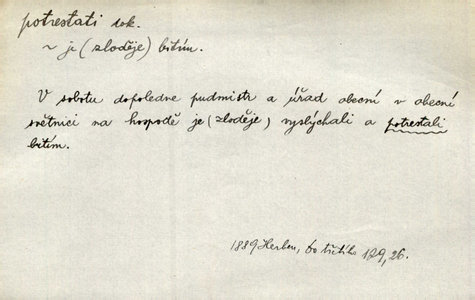 potrestati dok.
~ je (zloděje) bitím.
V sobotu dopoledne pudmistr a úřad obecní v obecní
světnici na hospodě je (zloděje) vyslýchali a potrestali
bitím.
1889 Herben, Do třetího 189, 26.